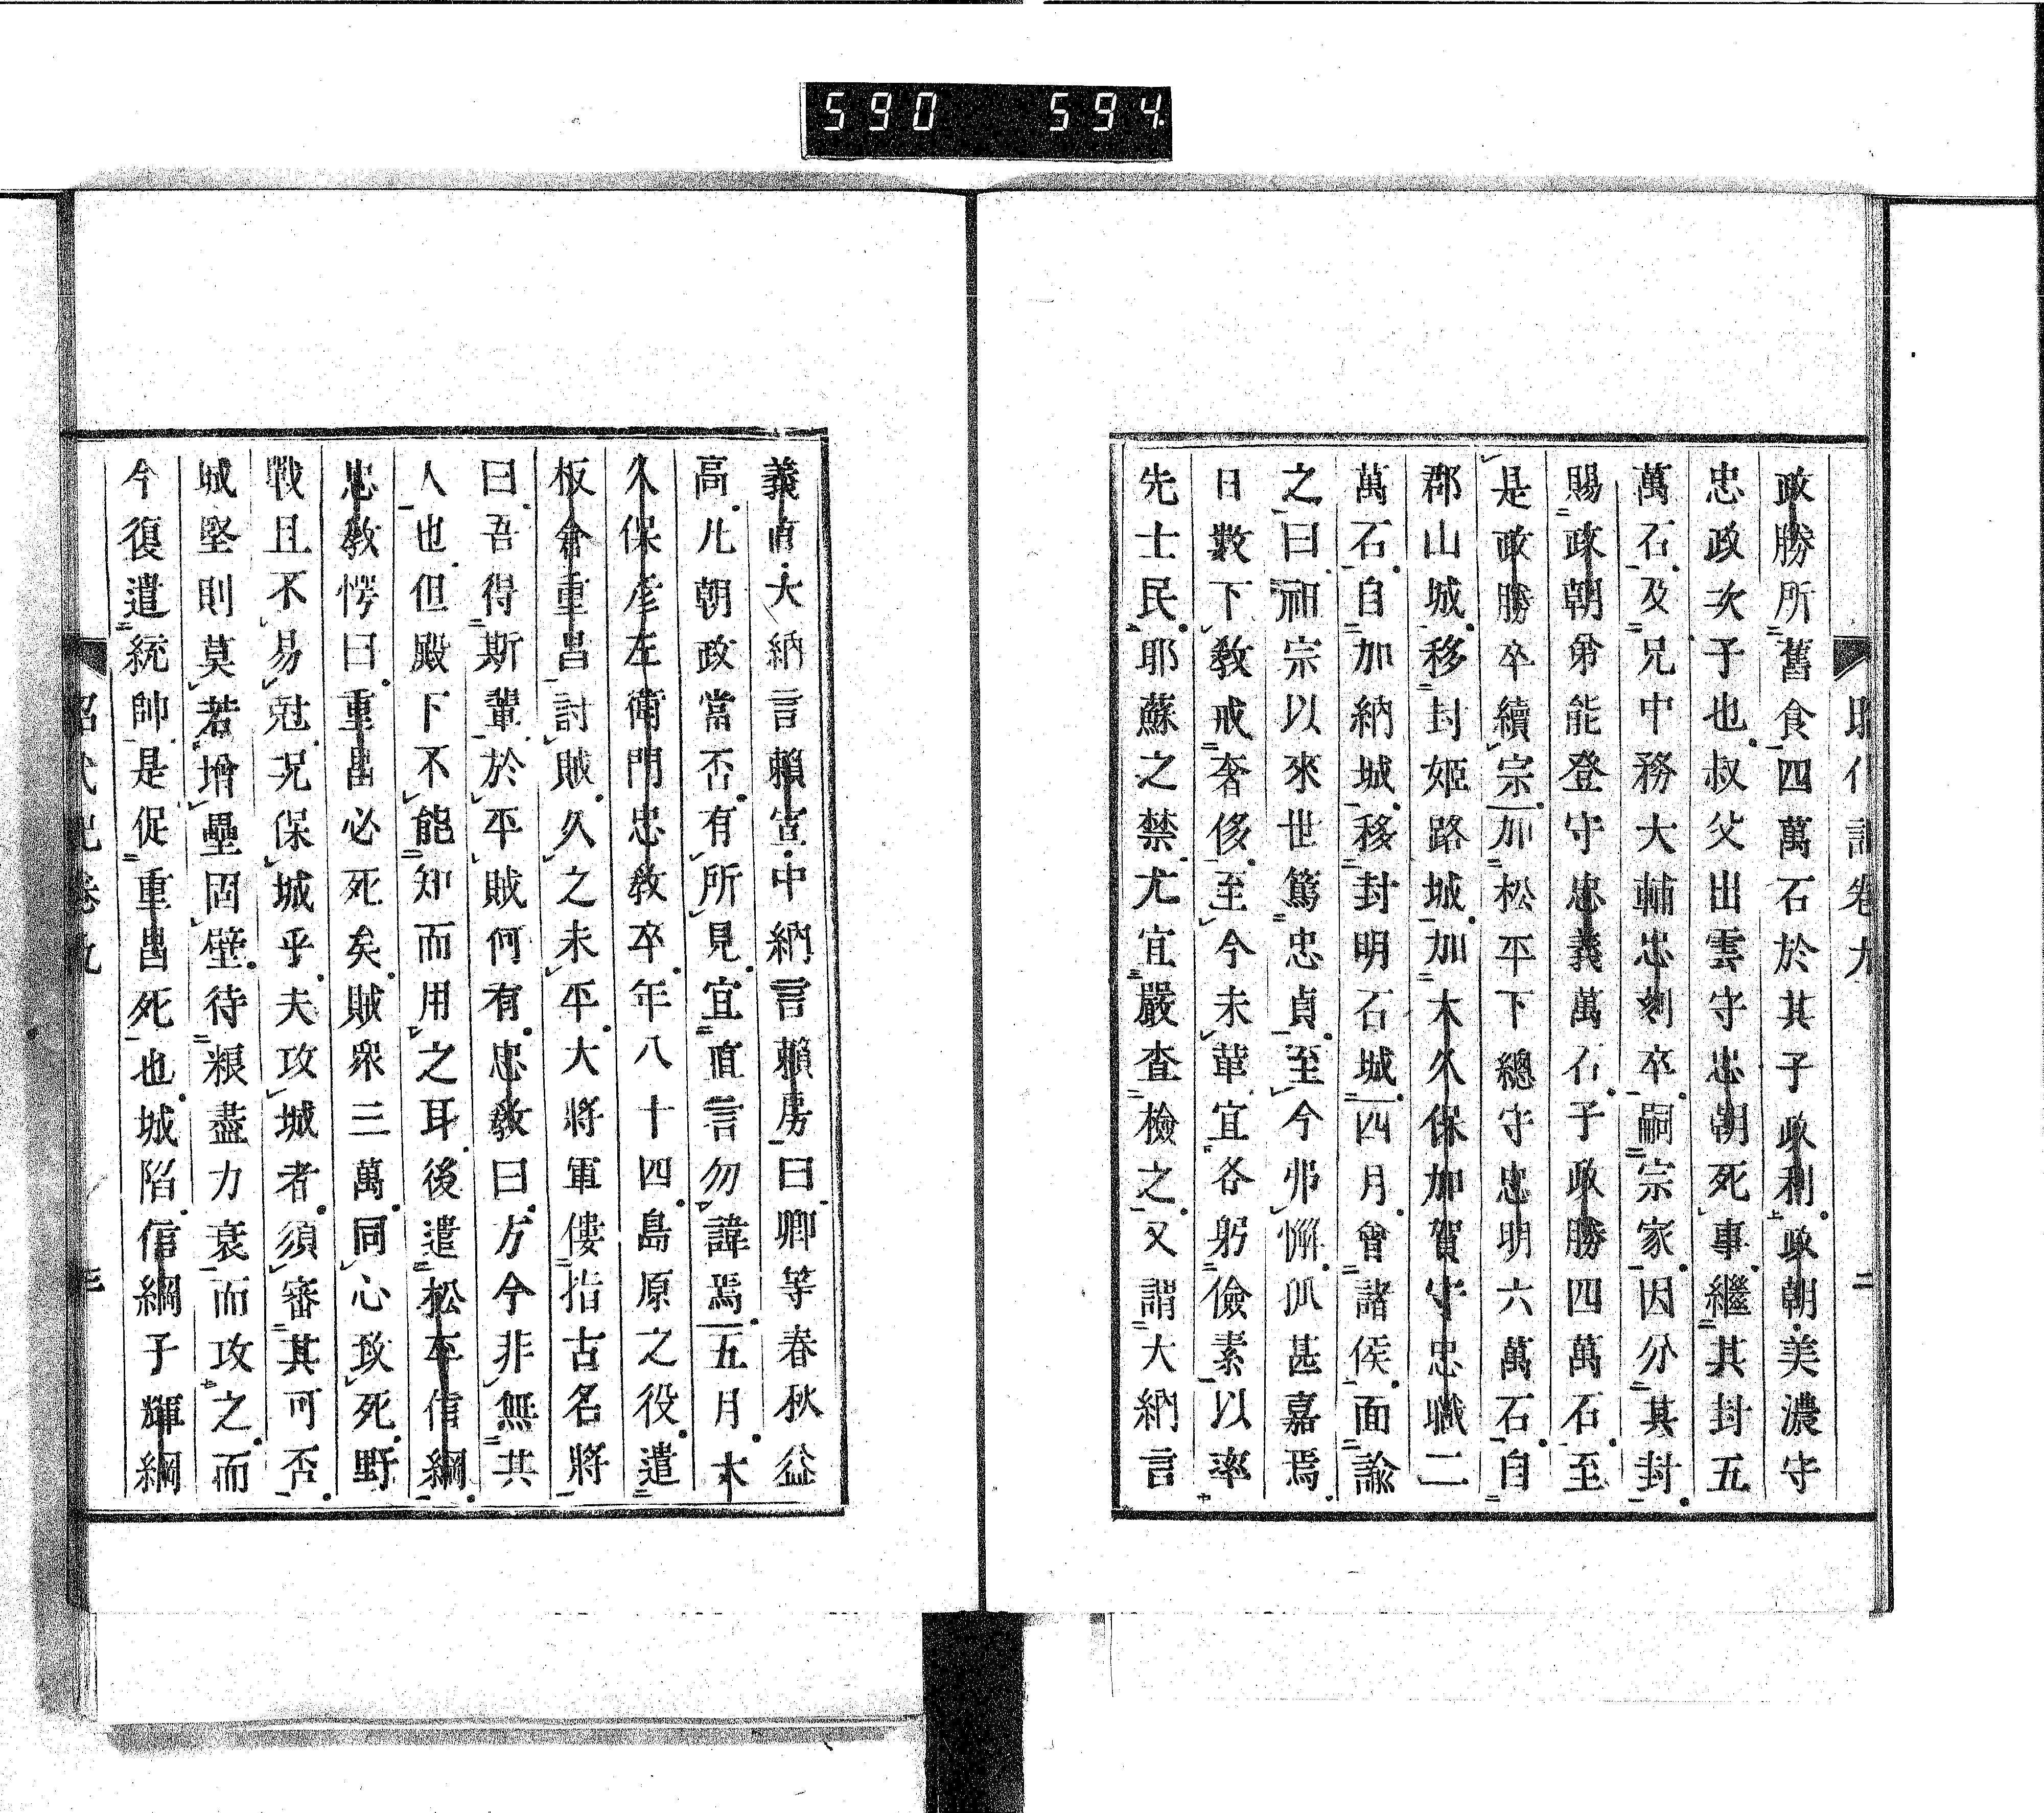 590 594
昭代記卷九 二
政勝所舊食四萬石於其子政利政朝美濃守
忠政次子也叔父出雲守忠朝死事繼其封五
萬石及兄中務大輔忠刻卒嗣宗家因分其封
賜政朝弟能登守忠義萬石子政勝四萬石至
是政勝卒續宗加松平下總守忠明六萬石自
郡山城移封姬路城加大久保加賀守忠職二
萬石自加納城移封明石城四月會諸侯面諭
之曰祖宗以來世篤忠貞至今弗懈孤甚嘉焉
日數下教戒奢侈至今未革宜各躬儉素以率
先士民耶蘇之禁尤宜嚴查檢之又謂大納言
義直大納言賴宣中納言賴房曰卿等春秋益
高凡朝政當否有所見宜直言勿諱焉五月大
久保彦左衛門忠教卒年八十四島原之役遣
板倉重昌討賊久之未平大將軍僂指古名將
曰吾得斯輩於平賊何有忠教曰方今非無其
人也但殿下不能知而用之耳後遣松平信綱
忠教愕曰重昌必死矣賊衆三萬同心致死野
戰且不易尅况保城乎夫攻城者須審其可否
城堅則莫若增壘固壁待粮盡力衰而攻之而
今復遣統帥是促重昌死也城陷信綱子輝綱
昭代記卷九 三